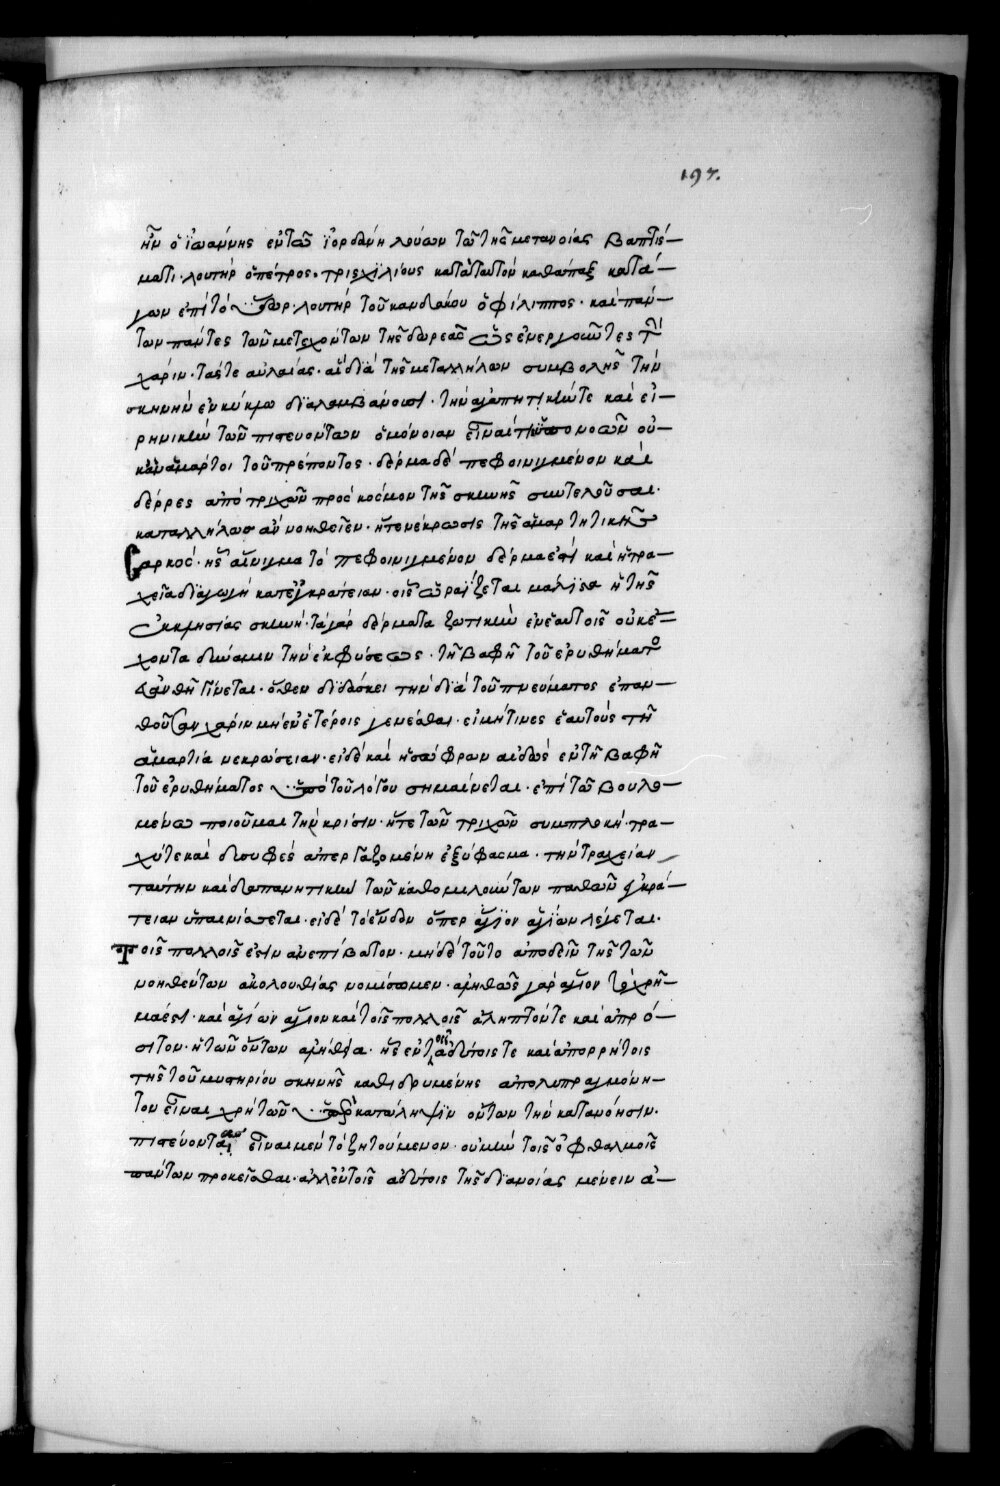 197.
ἦν ὁ ἰωάννης ἐν τῶ ἰορδάνη λούων τῶ τῆς μετανοίας βαπτίσ—
ματι· λουτὴρ ὁ πέτρος· τρισχιλίους κατὰ ταυτὸν καθάπαξ κατά—
γων ἐπὶ τὸ ὕδωρ· λουτὴρ τοῦ κανδάκου ὁ φίλιππος· καὶ πάν—
των πάντες τῶν μετεχόντων τῆς δωρεᾶς ἐνεργοῦντες τὴν
χάριν· τάς τε αὐλαίας· αἳ διὰ τῆς μεταλλήλων συμβολῆς τὴν
σκηνὴν ἐν κύκλω διαλαμβάνουσι· τὴν ἀγαπητικήν τε καὶ εἰ—
ρηνικὴν τῶν πιστευόντων ὁμόνοιαν εἶναί τις ὑπονοῶν οὐ—
κ ἂν ἁμάρτοι τοῦ πρέποντος· δέρμα δὲ πεφοινιγμένον καὶ
δέρρεις ἀπὸ τριχῶν πρὸς κόσμον τῆς σκηνῆς συντελοῦσαι·
καταλλήλως ἂν νοηθεῖεν· ἥ τε νέκρωσις τῆς ἁμαρτητικῆς
σαρκός· ἧς αἴνιγμα τὸ πεφοινιγμένον δέρμα ἐστὶ καὶ ἡ τρα—
χεῖα διαγωγὴ κατ' ἐγκράτειαν· οἷς ὡραΐζεται μάλιστα ἡ τῆς
ἐκκλησίας σκηνή· τὰ γὰρ δέρματα ζωτικὴν ἐν ἑαυτοῖς οὐκ ἔ—
χοντα δύναμιν τὴν ἐκ φύσεως· τῆ βαφῆ τοῦ ἐρυθήματος
εὐανθῆ γίνεται· ὅπερ διδάσκει τὴν διὰ τοῦ πνεύματος ἐπαν—
θοῦσαν χάριν μὴ ἐν ἑτέροις γενέσθαι· εἰ μή τινες ἑαυτοὺς τῆ
ἁμαρτία νεκρώσειαν· εἰ δὲ καὶ ἡ σώφρων αἰδὼς ἐν τῆ βαφῆ
τοῦ ἐρυθήματος ὑπὸ τοῦ λόγου σημαίνεται· ἐπὶ τῶ βουλο—
μένω ποιοῦμαι τὴν κρίσιν· ἥ τε τῶν τριχῶν συμπλοκή· τρα—
χύ τε καὶ δυσαφὲς ἀπεργαζομένη ἐξύφασμα· τὴν τραχεῖαν
ταύτην καὶ δαπανητικὴν τῶν καθομιλούντων παθῶν ἐγκρά—
τειαν ὑπαινίσσεται· εἰ δὲ τὸ ἔνδον ὅπερ ἅγιον ἁγίων λέγεται·
τοῖς πολλοῖς ἐστὶν ἀνεπίβατον· μηδὲ τοῦτο ἀπᾴδειν τῆς τῶν
νοηθέντων ἀκολουθίας νομίσωμεν· ἀληθῶς γὰρ ἅγιον τὸ χρῆ—
μά ἐστι· καὶ ἁγίων ἅγιον καὶ τοῖς πολλοῖς ἄληπτόν τε καὶ ἀπρό—
σιτον· ἡ τῶν ὄντων ἀλήθεια· ἧς ἐν τοῖς ἀδύτοις τε καὶ ἀπορρήτοις
τῆς τοῦ μυστηρίου σκηνῆς καθιδρυμένης ἀπολυπραγμόνη—
τον εἶναι χρὴ τῶν ὑπὲρ κατάληψιν ὄντων τὴν κατανόησιν·
πιστεύοντας εἶναι μὲν τὸ ζητούμενον· οὐ μὴν τοῖς ὀφθαλμοῖς
πάντων προκεῖσθαι· ἀλλ' ἐν τοῖς ἀδύτοις τῆς διανοίας μένειν ἀ—